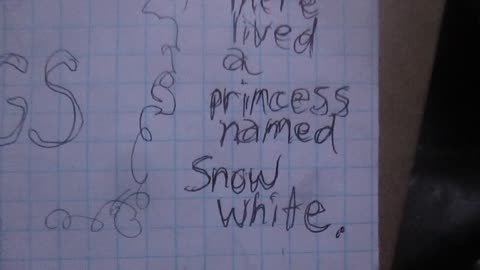 there
lived
a
princess
named
Snow
White.
GS